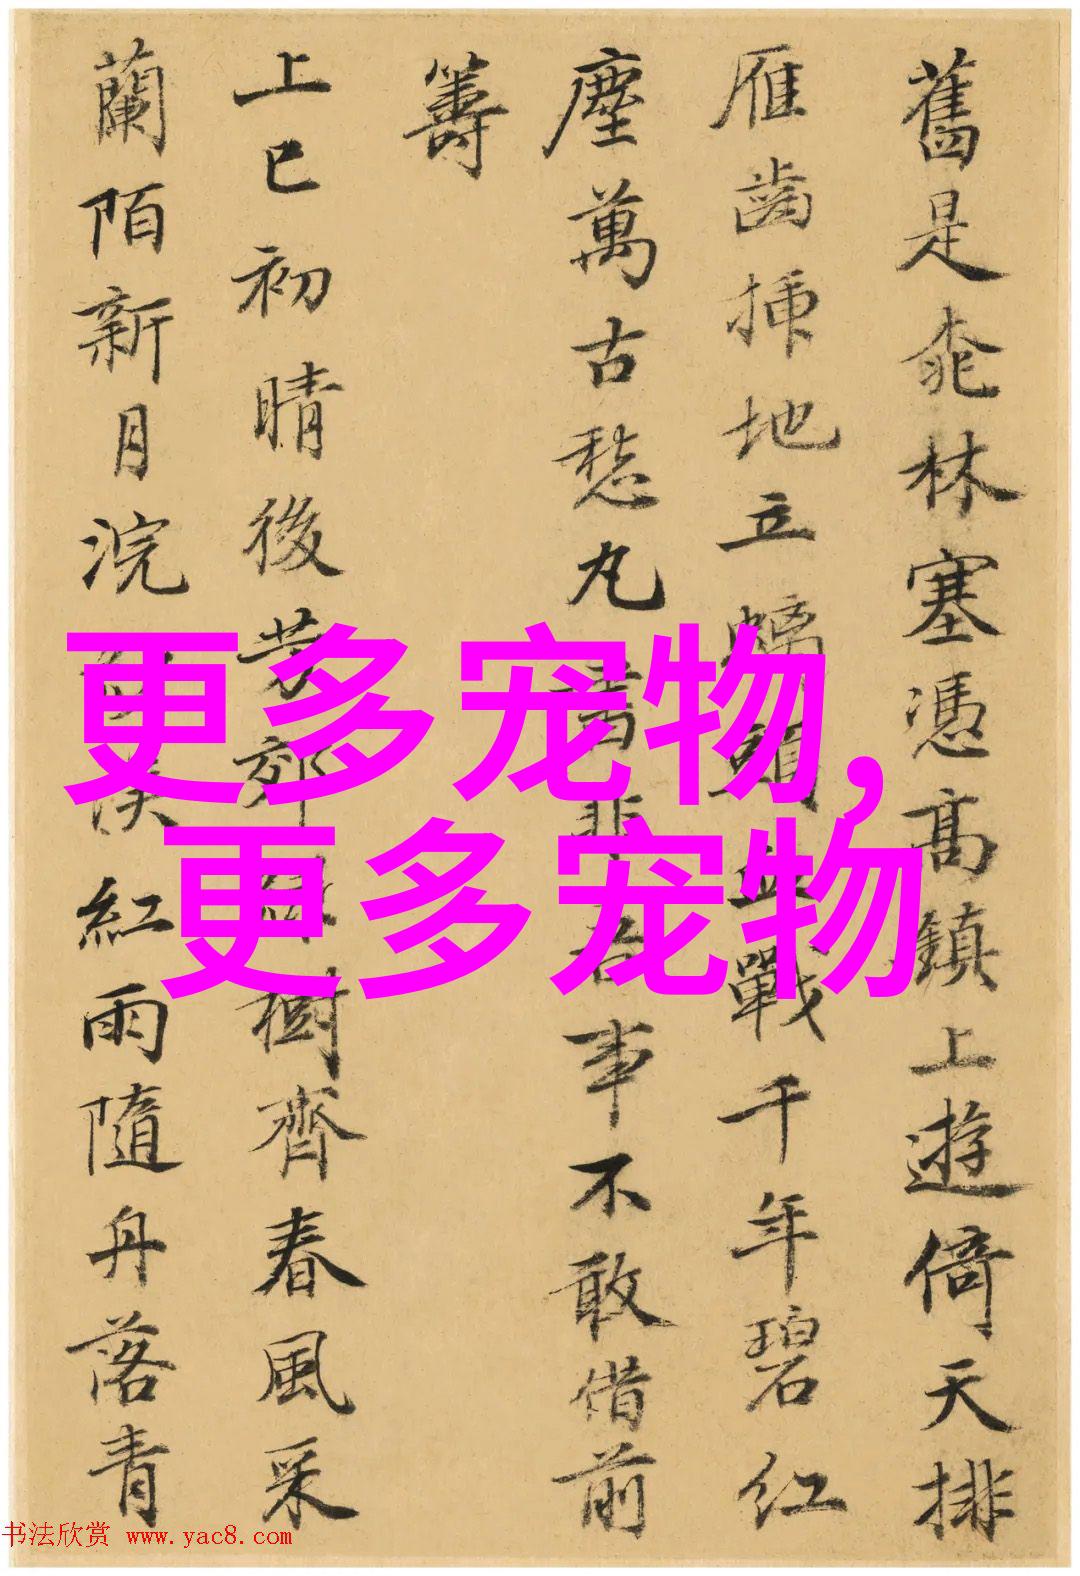 舊是桃林塞憑高鎮上遊倚天排
雁齒揷地立螭頭血戰千年碧紅
塵萬古愁丸書非吾事不敢借前
籌
上巳初晴後芳郊綠樹齊春風采
蘭陌新月浣紅雨隨丹落青
更多宠物,
更多宠物
书法欣赏 www.yac8.com